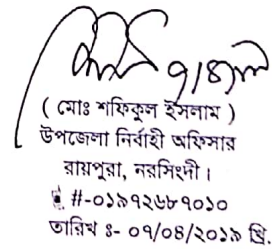 ( মোঃ শফিকুল ইসলাম )
উপজেলা নির্বাহী অফিসার
রায়পুরা, নরসিংদী ।
#-০১৯৭২৬৮৭০১০
তারিখ ঃ- ০৭/০৪/২০১৯ খ্রি.